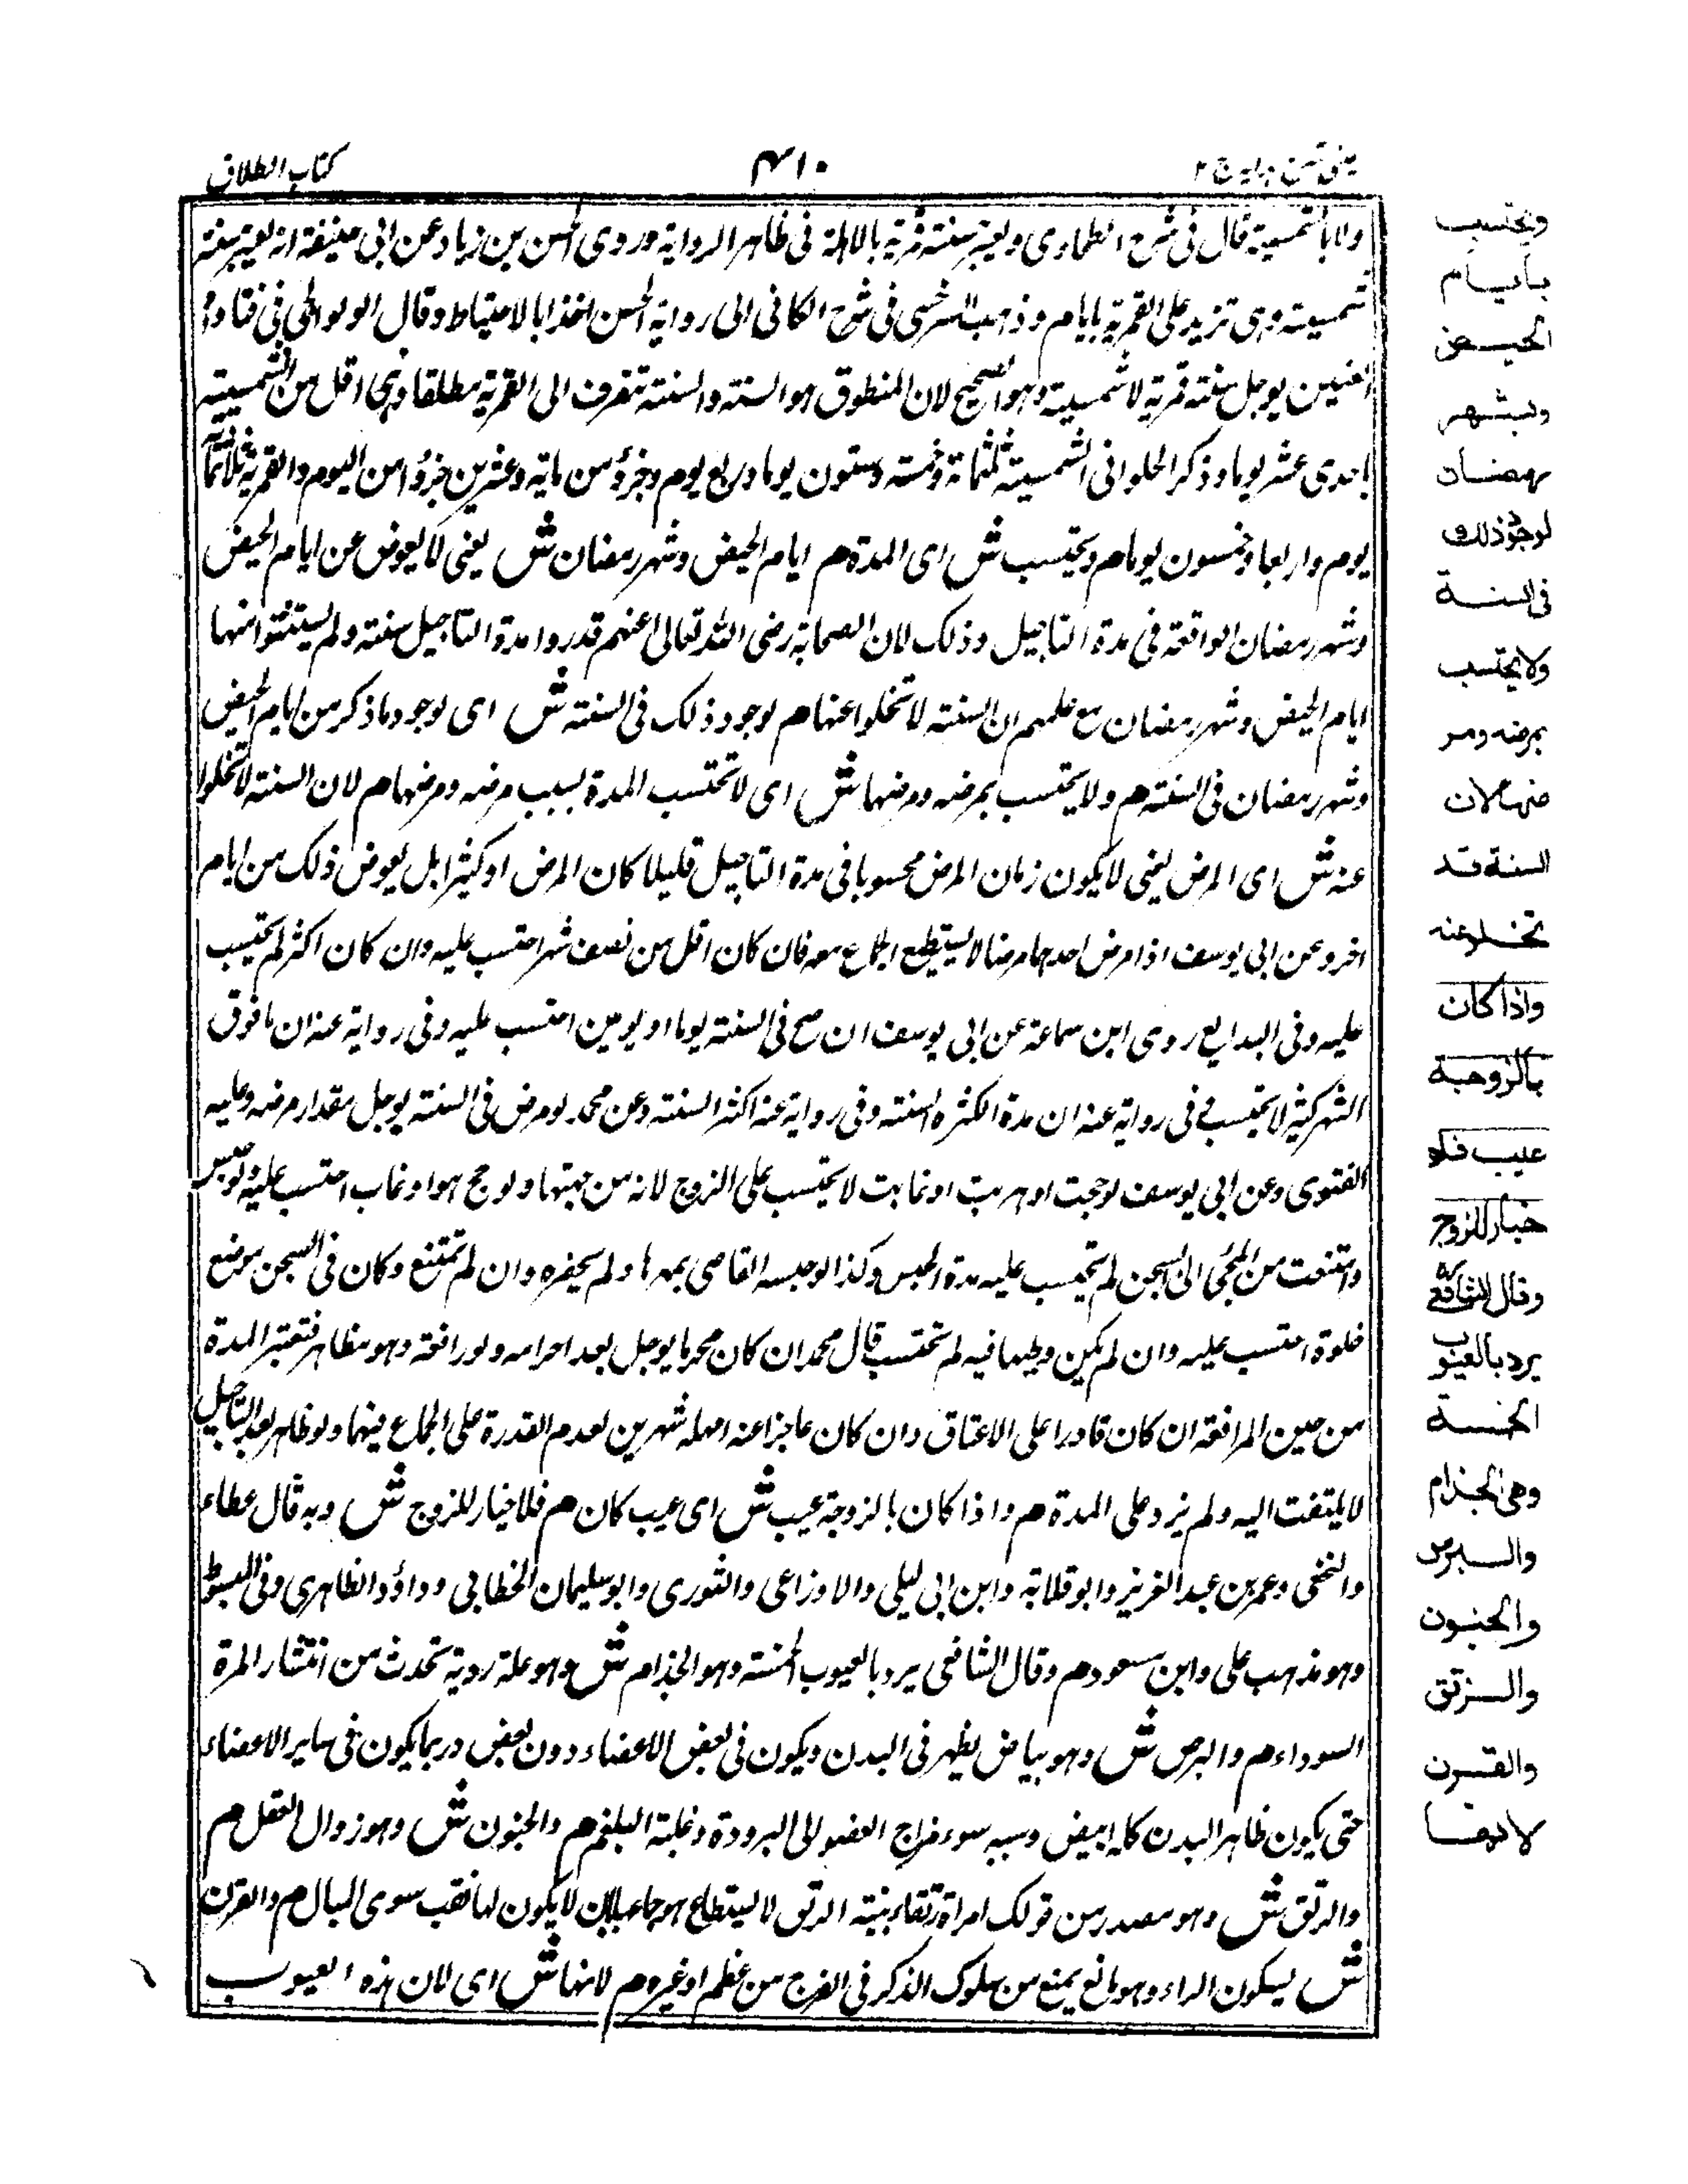 عینی شرح ہدایہ ج ۲
۴۱۰
کتاب الطلاق
ولا بالشمسیة قال فی شرح الطحاوی ویعتبر سنة قمریة بالاهلة فی ظاهر الروایة وروی الحسن بن زیاد عن ابی حنیفة انه یعتبر سنة
شمسیة وهی تزید علی القمریة بایام وذهب السرخسی فی شرح الکافی الی روایة الحسن اخذا بالاحتیاط وقال الولوالجی فی فتاواه
العنین یوجل سنة قمریة لا شمسیة وهو الصحیح لان المنطوق هو السنة والسنة تنصرف الی القمریة مطلقا وهی اقل من الشمسیة
باحدی عشر یوما وذکر الحلوانی الشمسیة ثلثمائة وخمسة وستون یوما وربع یوم وجزؤ من مایة وعشرین جزؤا من الیوم والقمریة ثلاثمائة
یوم واربعا وخمسون یوما م ویحتسب ش ای المدة م ایام الحیض وشهر رمضان ش یعنی لا یعوض عن ایام الحیض
وشهر رمضان الواقعة فی مدة التاجیل وذلک لان الصحابة رضی الله تعالی عنهم قدروا مدة التاجیل سنة ولم یستثنوا منها
ایام الحیض وشهر رمضان مع علمهم ان السنة لا تخلوا عنها م لوجود ذلک فی السنة ش ای لوجود ما ذکر من ایام الحیض
وشهر رمضان فی السنة م ولا یحتسب بمرضه ومرضها ش ای لا تحتسب المدة بسبب مرضه ومرضها م لان السنة لا تخلوا
عنه ش ای المرض یعنی لا یکون زمان المرض محسوبا فی مدة التاجیل قلیلا کان المرض او کثیرا بل یعوض ذلک من ایام
اخر وعن ابی یوسف اذا مرض احدهما مرضا لا یستطیع الجماع معه فان کان اقل من نصف شهر احتسب علیه وان کان اکثر لم یحتسب
علیه وفی البدایع روی ابن سماعة عن ابی یوسف ان صح فی السنة یوما او یومین احتسب علیه وفی روایة عنه ان ما فوق
الشهر کثیر لا یحتسب فی روایة عنه ان مدة الکثرة السنة وفی روایة عنه اکثر السنة وعن محمد لو مرض فی السنة یوجل مقدار مرضه وعلیه
الفتوی وعن ابی یوسف لو حجت او هربت او غابت لا یحتسب علی الزوج لانه من جهتها ولو حج هو او غاب احتسب علیه ولو حبس
وامتنعت من المجئ الی السجن لم یحتسب علیه مدة الحبس وکذا لو حبسه القاضی بمهرها ولم یحضره وان لم تمتنع وکان فی السجن موضع
خلوة احتسب علیه وان لم یکن وطیها فیه لم تحتسب قال محمد ان کان محرما یوجل بعد احرامه ولو رافعته وهو مظاهر فتعتبر المدة
من حین المرافعة ان کان قادرا علی الاعتاق وان کان عاجزا عنه امهله شهرین لعدم القدرة علی الجماع فیهما ولو ظاهر بعد التاجیل
لا یلتفت الیه ولم یزد علی المدة م واذا کان بالزوجة عیب ش ای عیب کان م فلا خیار للزوج ش وبه قال عطاء
والنخعی وعمر بن عبد العزیز وابو قلابة وابن ابی لیلی والاوزاعی والثوری وابو سلیمان الخطابی وداؤد الظاهری وفی المبسوط
وهو مذهب علی وابن مسعود م وقال الشافعی یرد بالعیوب الخمسة وهو الجذام ش وهو علة ردیة تحدث من انتشار المرة
السوداء م والبرص ش وهو بیاض یظهر فی البدن ویکون فی بعض الاعضاء دون بعض وربما یکون فی سایر الاعضاء
حتی یکون ظاهر البدن کله ابیض وسببه سوء مزاج العضو الی البرودة وغلبة البلغم م والجنون ش وهو زوال العقل م
والرتق ش وهو مصدر من قولک امراة رتقاء بینة الرتق لا یستطاع جماعها بان لا یکون لها ثقب سوی المبال م والقرن
ش بسکون الراء وهو مانع یمنع من سلوک الذکر فی الفرج من عظم او غیره م لانها ش ای لان هذه العیوب
ویحتسب
بایام
الحیض
وبشهر
رمضان
لوجود ذلک
فی السنة
ولا یحتسب
بمرضه ومر
ضها لان
السنة قد
تخلو عنه
واذا کان
بالزوجة
عیب فلا
خیار للزوج
وقال الشافعی
یرد بالعیوب
الخمسة
وهی الجذام
والبرص
والجنون
والرتق
والقرن
لانها